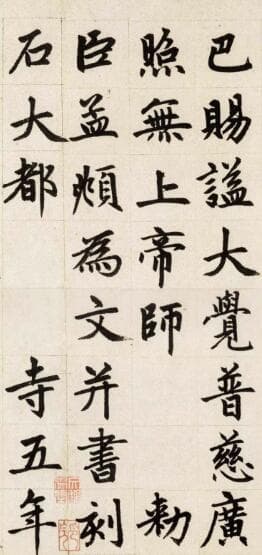 巴賜謚大覺普慈廣
照無上帝師　勅
臣孟頫為文并書刻
石大都　寺五年